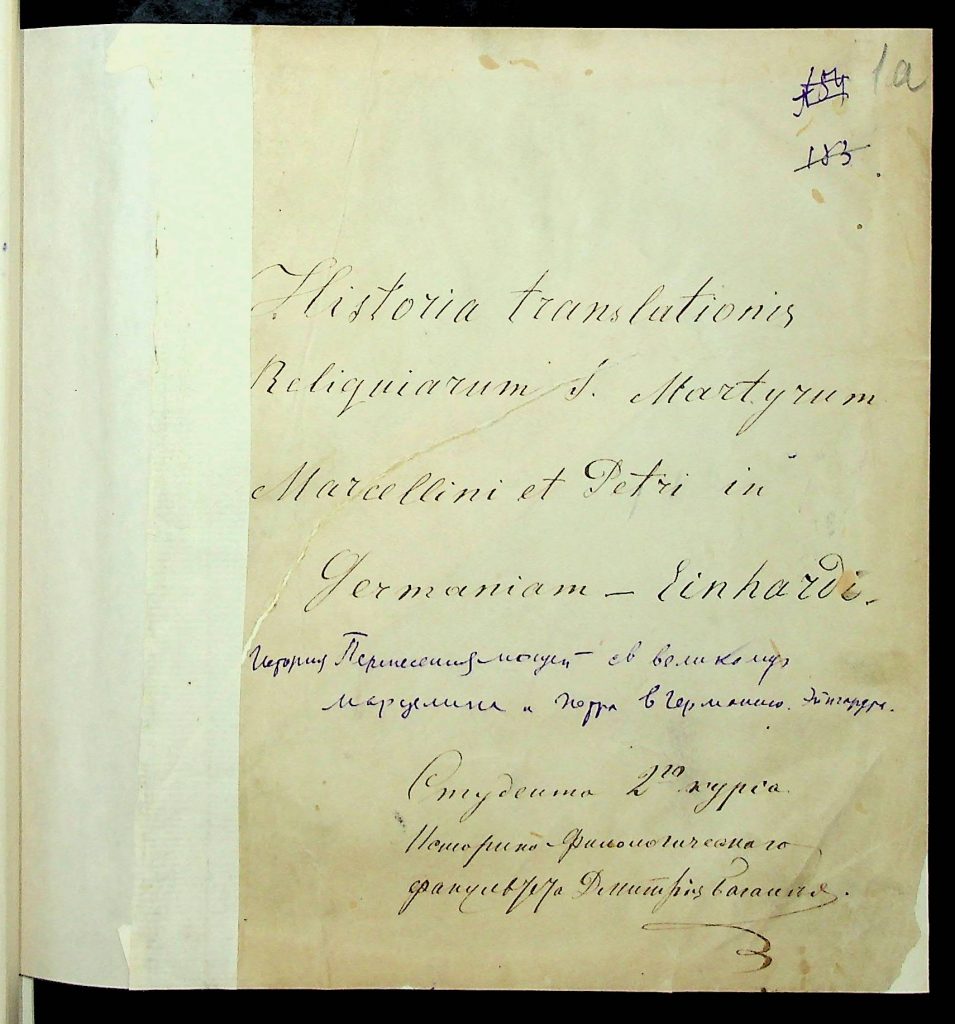 1а
183
Historia translationis
Reliquiarum S. Martyrum
Marcellini et Petri in
Germaniam – Einhardi.
История Перенесения мощей св великому
марцелина и петра в Германию. Эйнгарда.
Студента 2го курса
Историко-Филологическаго
факультета Дмитрія Багалѣя.